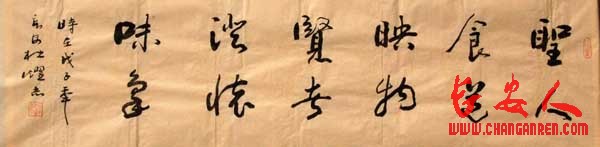 聖人
含道
映物
賢者
澄懷
味象
時在戊子年
杜
长安人
WWW.CHANGANREN.COM